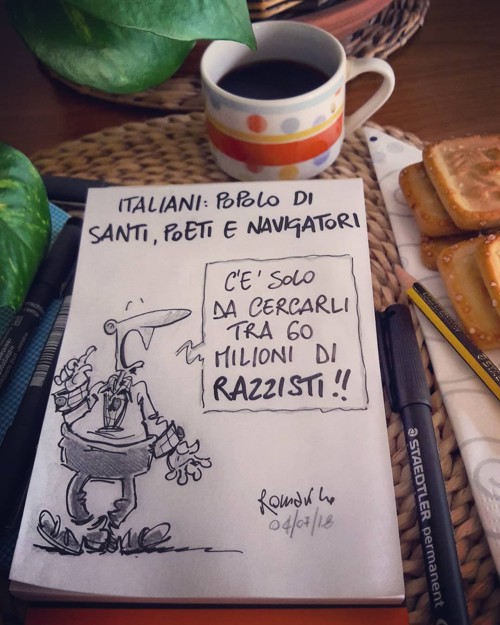 ITALIANI: POPOLO DI
SANTI, POETI E NAVIGATORI
C'E' SOLO
DA CERCARLI
TRA 60
MILIONI DI
RAZZISTI!!
04/07/18
STAEDTLER permanent